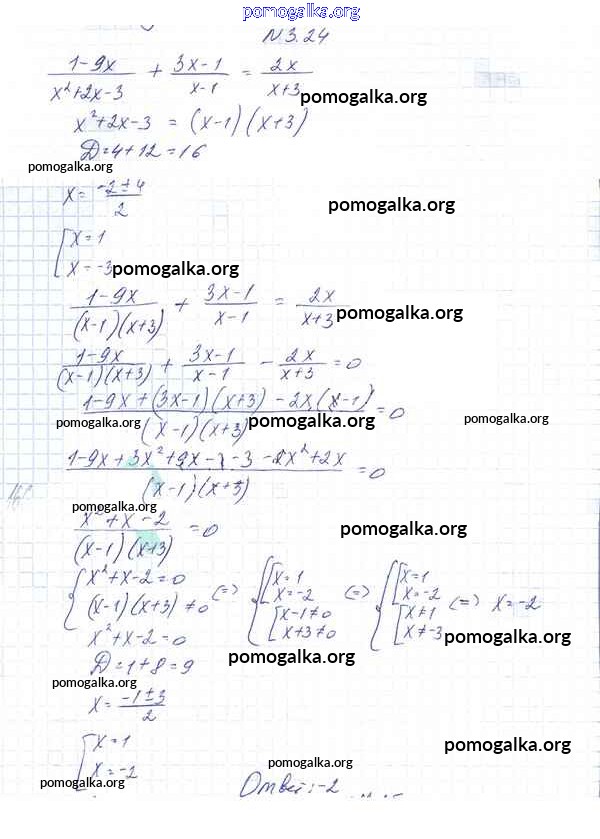 pomogalka.org
N 3.24
(1-9x)/(x²+2x-3) + (3x-1)/(x-1) = 2x/(x+3)
pomogalka.org
x²+2x-3 = (x-1)(x+3)
D=4+12=16
pomogalka.org
x = (-2±4)/2
pomogalka.org
[x=1
x=-3
pomogalka.org
(1-9x)/((x-1)(x+3)) + (3x-1)/(x-1) = 2x/(x+3)
pomogalka.org
(1-9x)/((x-1)(x+3)) + (3x-1)/(x-1) - 2x/(x+3) = 0
(1-9x+(3x-1)(x+3)-2x(x-1))/((x-1)(x+3)) = 0
pomogalka.org
pomogalka.org
pomogalka.org
(1-9x+3x²+9x-x-3-2x²+2x)/((x-1)(x+3)) = 0
pomogalka.org
(x²+x-2)/((x-1)(x+3)) = 0
pomogalka.org
{x²+x-2=0
(x-1)(x+3)≠0
(=)
{[x=1
x=-2
[x-1≠0
x+3≠0
(=)
{[x=1
x=-2
[x≠1
x≠-3
(=) x=-2
pomogalka.org
x²+x-2=0
pomogalka.org
D=1+8=9
pomogalka.org
x = (-1±3)/2
pomogalka.org
[x=1
x=-2
pomogalka.org
pomogalka.org
Ответ: -2
pomogalka.org